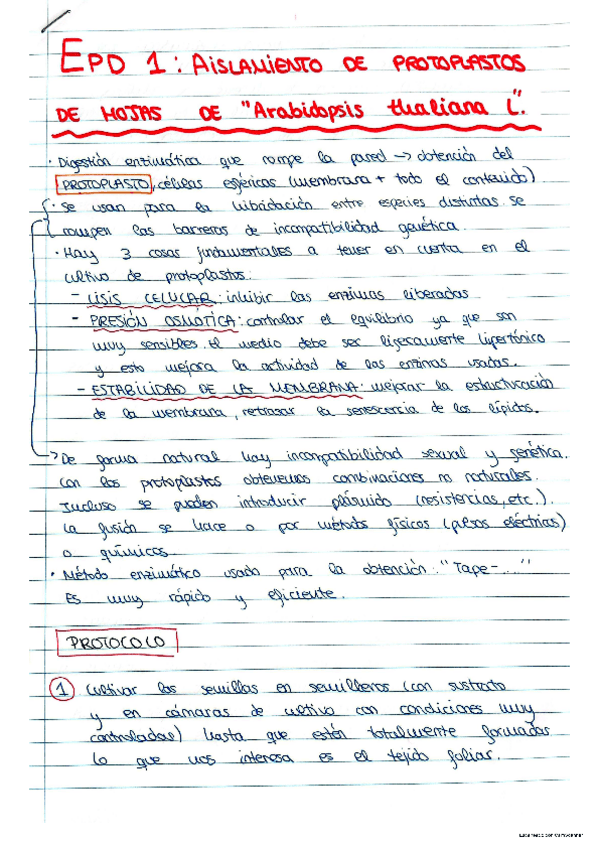 EPD 1: AISLAMIENTO DE PROTOPLASTOS
DE HOJAS DE "Arabidopsis thaliana L".
· Digestión enzimática que rompe la pared → obtención del
PROTOPLASTO, células esféricas (membrana + todo el contenido)
· Se usan para la hibridación entre especies distintas. Se
rompen las barreras de incompatibilidad genética.
· Hay 3 cosas fundamentales a tener en cuenta en el
cultivo de protoplastos:
- LISIS CELULAR: inhibir las enzimas liberadas
- PRESIÓN OSMÓTICA: controlar el equilibrio ya que son
muy sensibles. El medio debe ser ligeramente hipertónico
y esto mejora la actividad de las enzimas usadas.
- ESTABILIDAD DE LA MEMBRANA: mejorar la estructuración
de la membrana, retrasar la senescencia de los lípidos.
→ De forma natural hay incompatibilidad sexual y genética.
Con los protoplastos obtenemos combinaciones no naturales.
Incluso se pueden introducir plásmido (resistencias, etc.).
La fusión se hace o por métodos físicos (pulsos eléctricos)
o químicos.
· Método enzimático usado para la obtención: "Tape-..."
Es muy rápido y eficiente.
PROTOCOLO
1 Cultivar las semillas en semilleros (con sustrato
y en cámaras de cultivo con condiciones muy
controladas) hasta que estén totalmente formadas
lo que nos interesa es el tejido foliar.